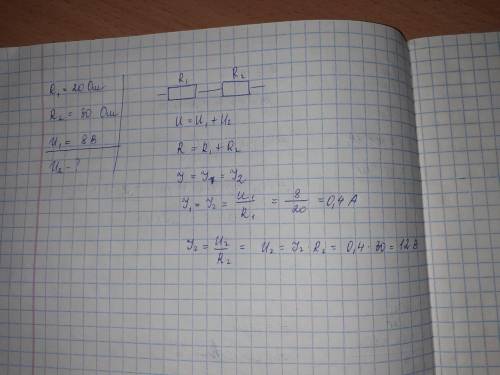 R₁ = 20 Ом
R₂ = 30 Ом
U₁ = 8 В
U₂ - ?
R₁ R₂
U = U₁ + U₂
R = R₁ + R₂
I = I₁ = I₂
I₁ = I₂ = U₁/R₁ = 8/20 = 0,4 A
I₂ = U₂/R₂ = U₂ = I₂ R₂ = 0,4 · 30 = 12 В